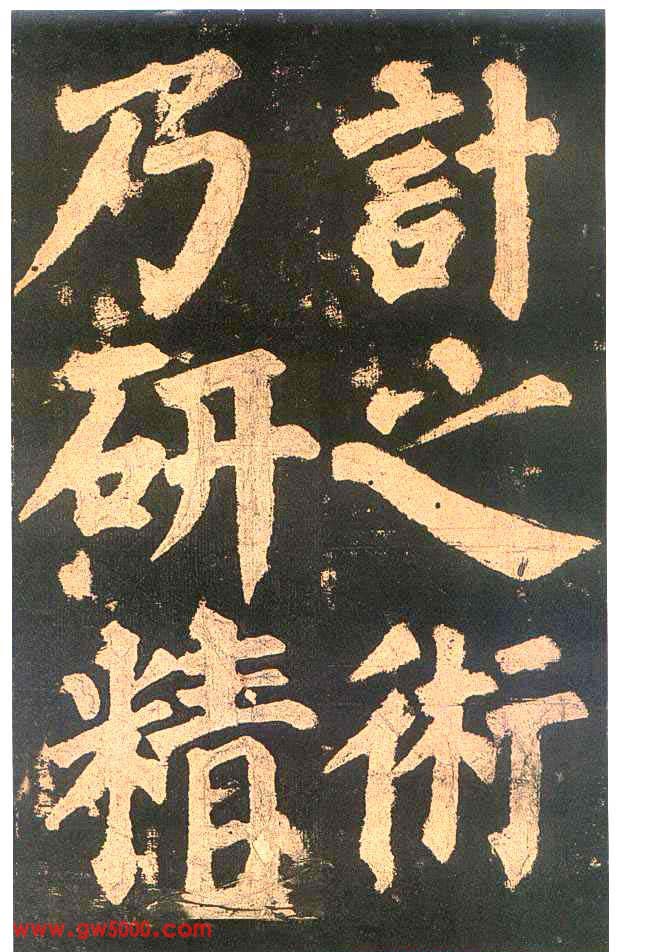 計之術
乃研精
www.gw5000.com